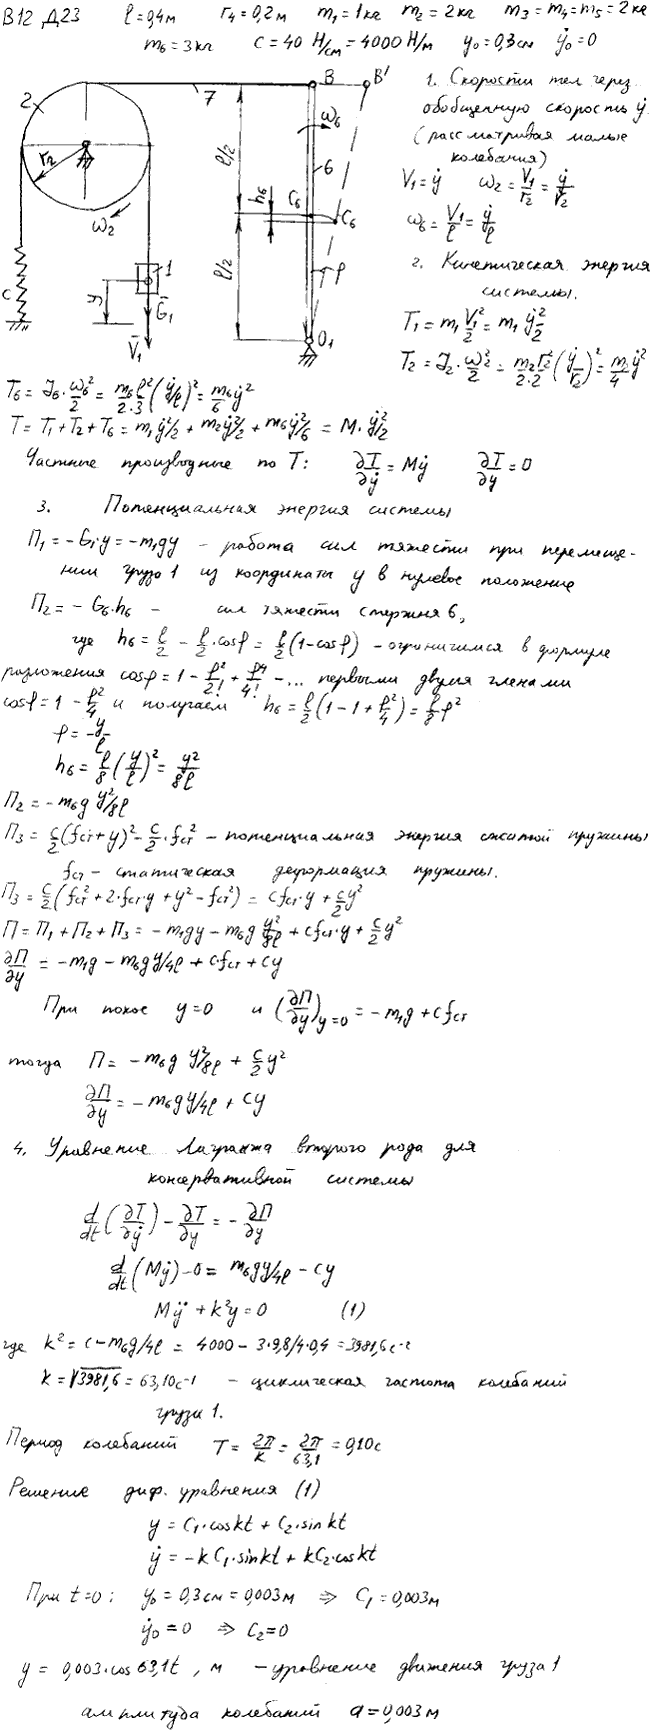 В12 Д23 ℓ=0,4м r₄=0,2м m₁=1кг m₂=2кг m₃=m₄=m₅=2кг
m₆=3кг c=40 Н/см=4000 Н/м y₀=0,3см ẏ₀=0
2
7
B
B'
r₂
ω₂
ω₆
6
ℓ/2
h₆
C₆
C₆
ℓ/2
φ
O₁
c
1
y
G̅₁
V̅₁
1. Скорости тел через
обобщенную скорость ẏ
(рассматривая малые
колебания)
V₁=ẏ ω₂=V₁/r₂=ẏ/r₂
ω₆=V₁/ℓ=ẏ/ℓ
2. Кинетическая энергия
системы.
T₁=m₁V₁²/2=m₁ẏ²/2
T₂=J₂·ω₂²/2=m₂r₂²/2·2(ẏ/r₂)²=m₂/4 ẏ²
T₆=J₆·ω₆²/2=m₆ℓ²/2·3(ẏ/ℓ)²=m₆/6 ẏ²
T=T₁+T₂+T₆=m₁ẏ²/2+m₂ẏ²/2+m₆ẏ²/6=M·ẏ²/2
Частные производные по T: ∂T/∂ẏ=Mẏ ∂T/∂y=0
3. Потенциальная энергия системы
П₁=-G₁·y=-m₁gy – работа сил тяжести при перемеще-
нии груза 1 из координаты y в нулевое положение
П₂=-G₆·h₆ – сил тяжести стержня 6,
где h₆=ℓ/2-ℓ/2·cosφ=ℓ/2(1-cosφ) – ограничимся в формуле
разложения cosφ=1-φ²/2!+φ⁴/4!-... первыми двумя членами
cosφ=1-φ²/4 и получаем h₆=ℓ/2(1-1+φ²/4)=ℓ/8 φ²
φ=y/ℓ
h₆=ℓ/8(y/ℓ)²=y²/8ℓ
П₂=-m₆g y²/8ℓ
П₃=c/2(fст+y)²-c/2·fст² – потенциальная энергия сжатой пружины
fст – статическая деформация пружины.
П₃=c/2(fст²+2·fст·y+y²-fст²)=cfст·y+c/2y²
П=П₁+П₂+П₃=-m₁gy-m₆g y²/8ℓ+cfст·y+c/2y²
∂П/∂y=-m₁g-m₆gy/4ℓ+c·fст+cy
При покое y=0 и (∂П/∂y)y=0=-m₁g+cfст
тогда П=-m₆g y²/8ℓ+c/2y²
∂П/∂y=-m₆gy/4ℓ+cy
4. Уравнение Лагранжа второго рода для
консервативной системы
d/dt(∂T/∂ẏ)-∂T/∂y=-∂П/∂y
d/dt(Mẏ)-0=m₆gy/4ℓ-cy
Mÿ+k²y=0 (1)
где k²=c-m₆g/4ℓ=4000-3·9,8/4·0,4=3981,6с⁻²
k=√3981,6=63,10с⁻¹ – циклическая частота колебаний
груза 1.
Период колебаний T=2π/k=2π/63,1=0,10с
Решение диф. уравнения (1)
y=C₁·coskt+C₂·sinkt
ẏ=-kC₁·sinkt+kC₂·coskt
При t=0: y₀=0,3см=0,003м ⇒ C₁=0,003м
ẏ₀=0 ⇒ C₂=0
y=0,003·cos63,1t, м – уравнение движения груза 1
амплитуда колебаний a=0,003м